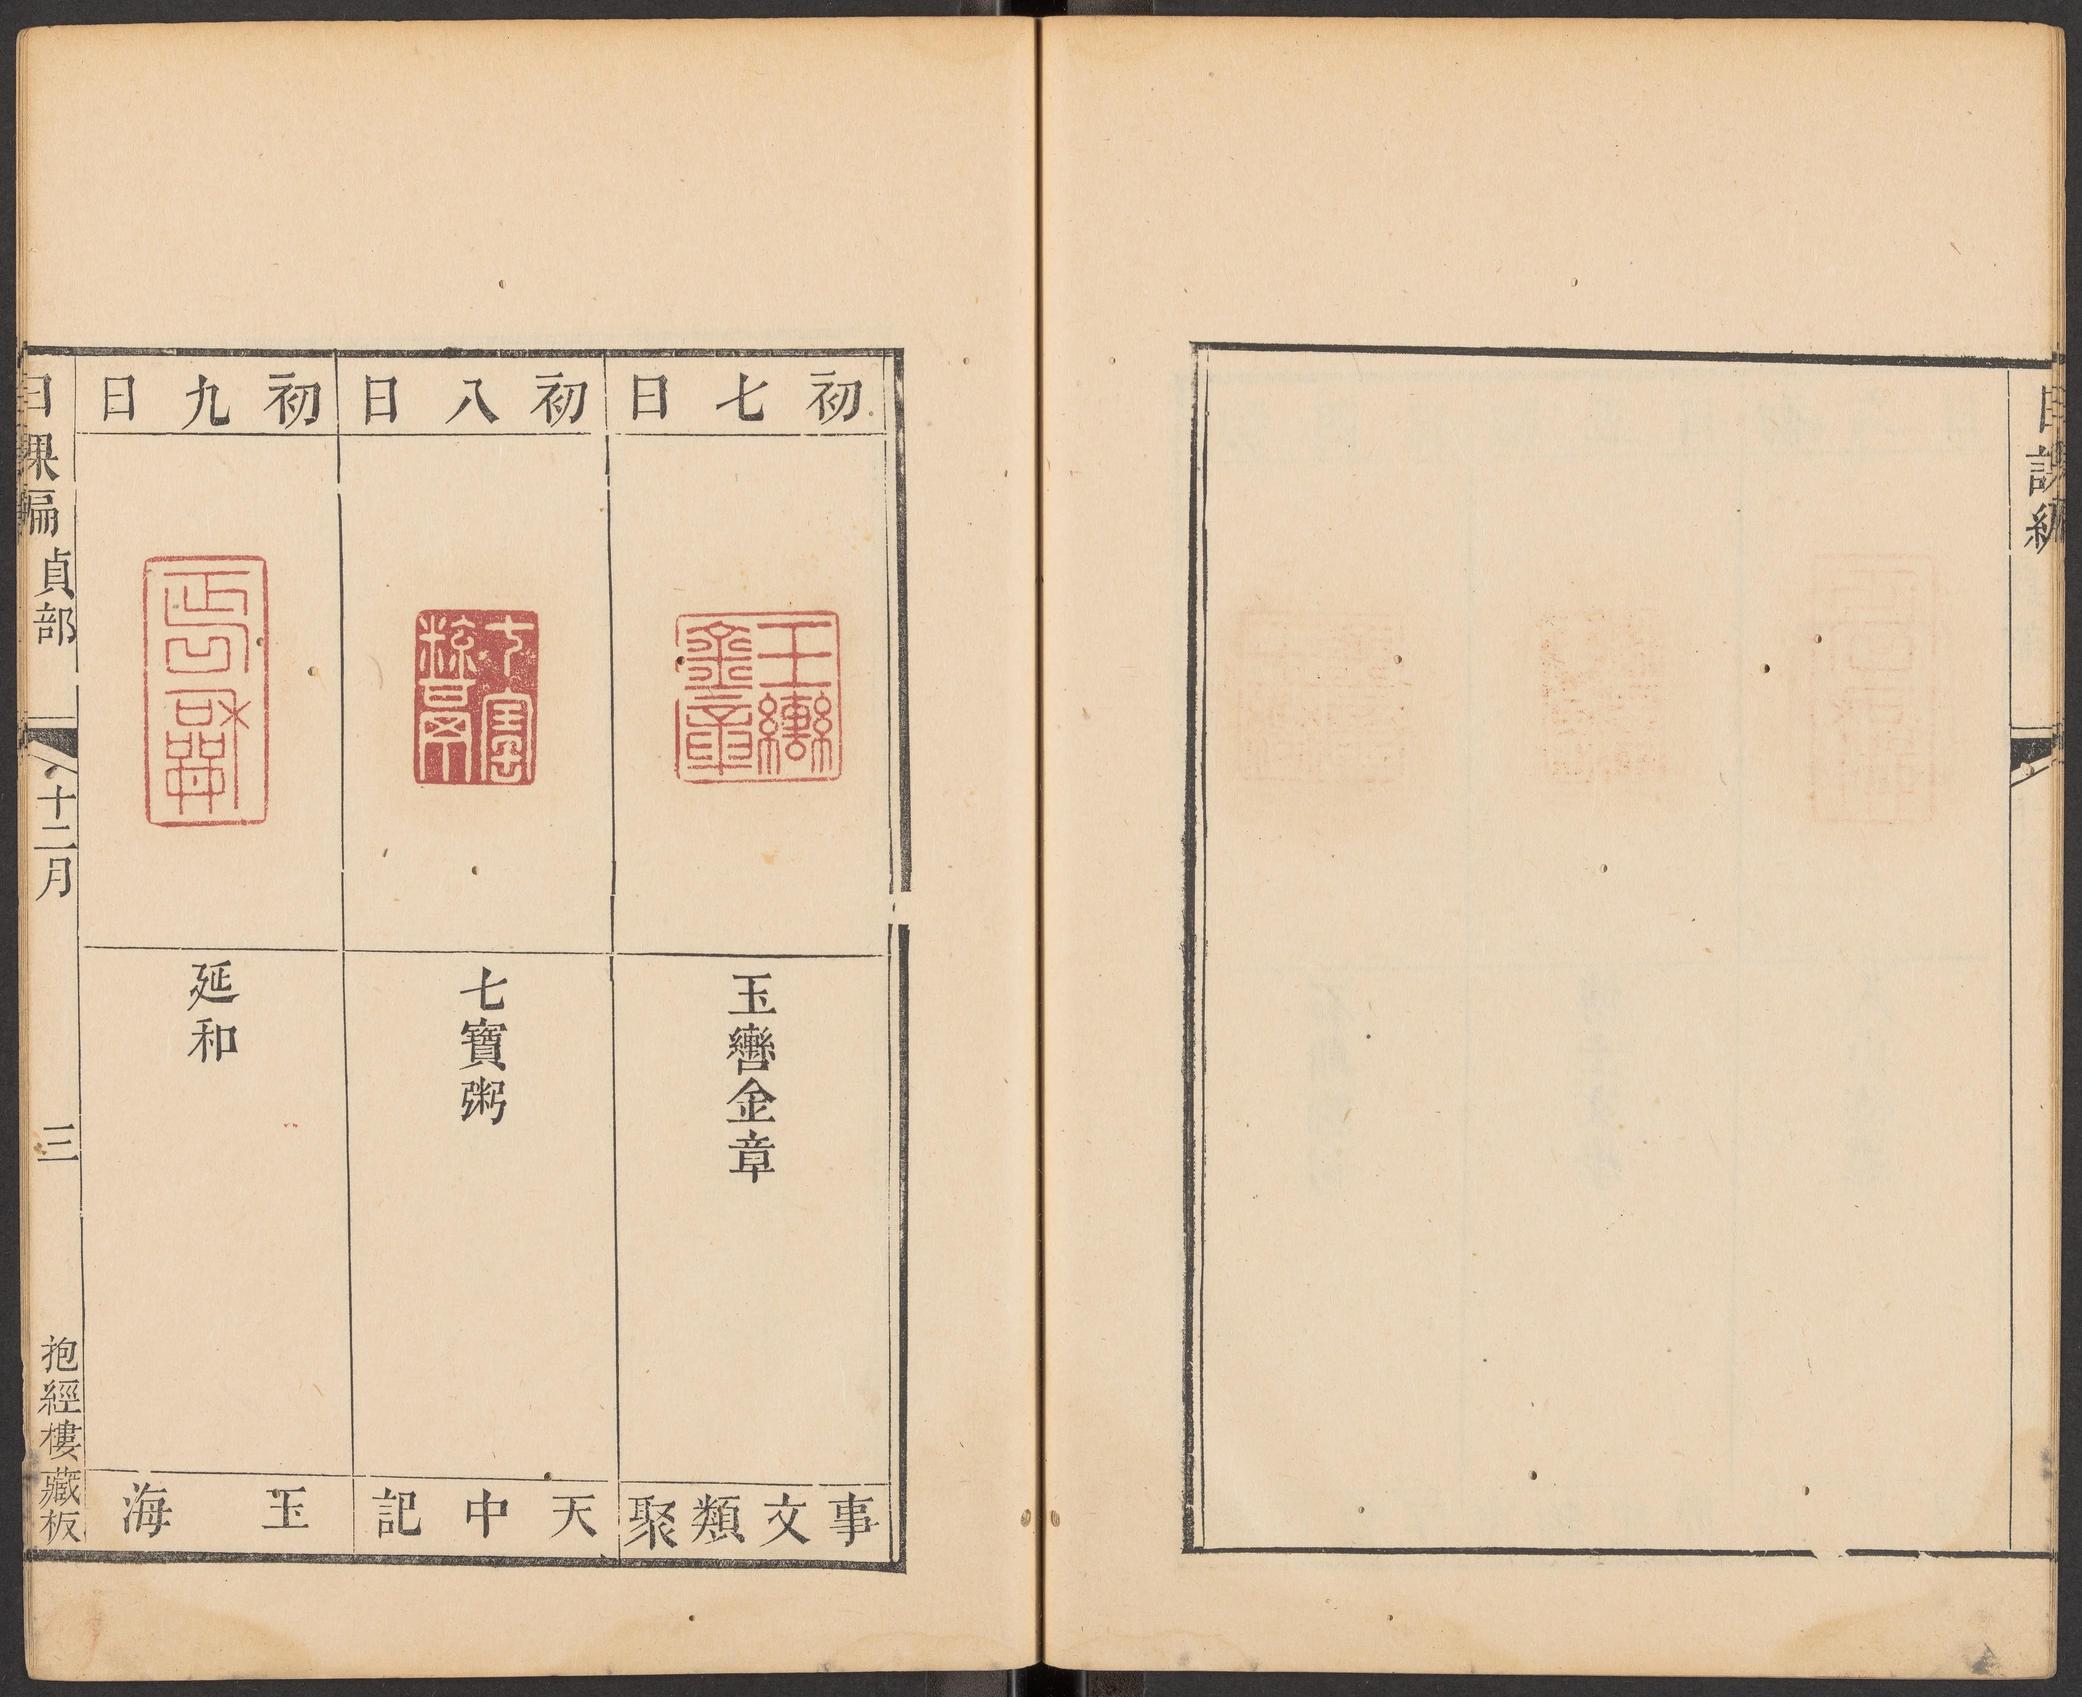 日課編
初七日
玉轡金章
玉轡金章
事文類聚
初八日
七寶粥
七寶粥
天中記
初九日
延和
延和
玉海
日課編 貞部 十二月 三 抱經樓藏板